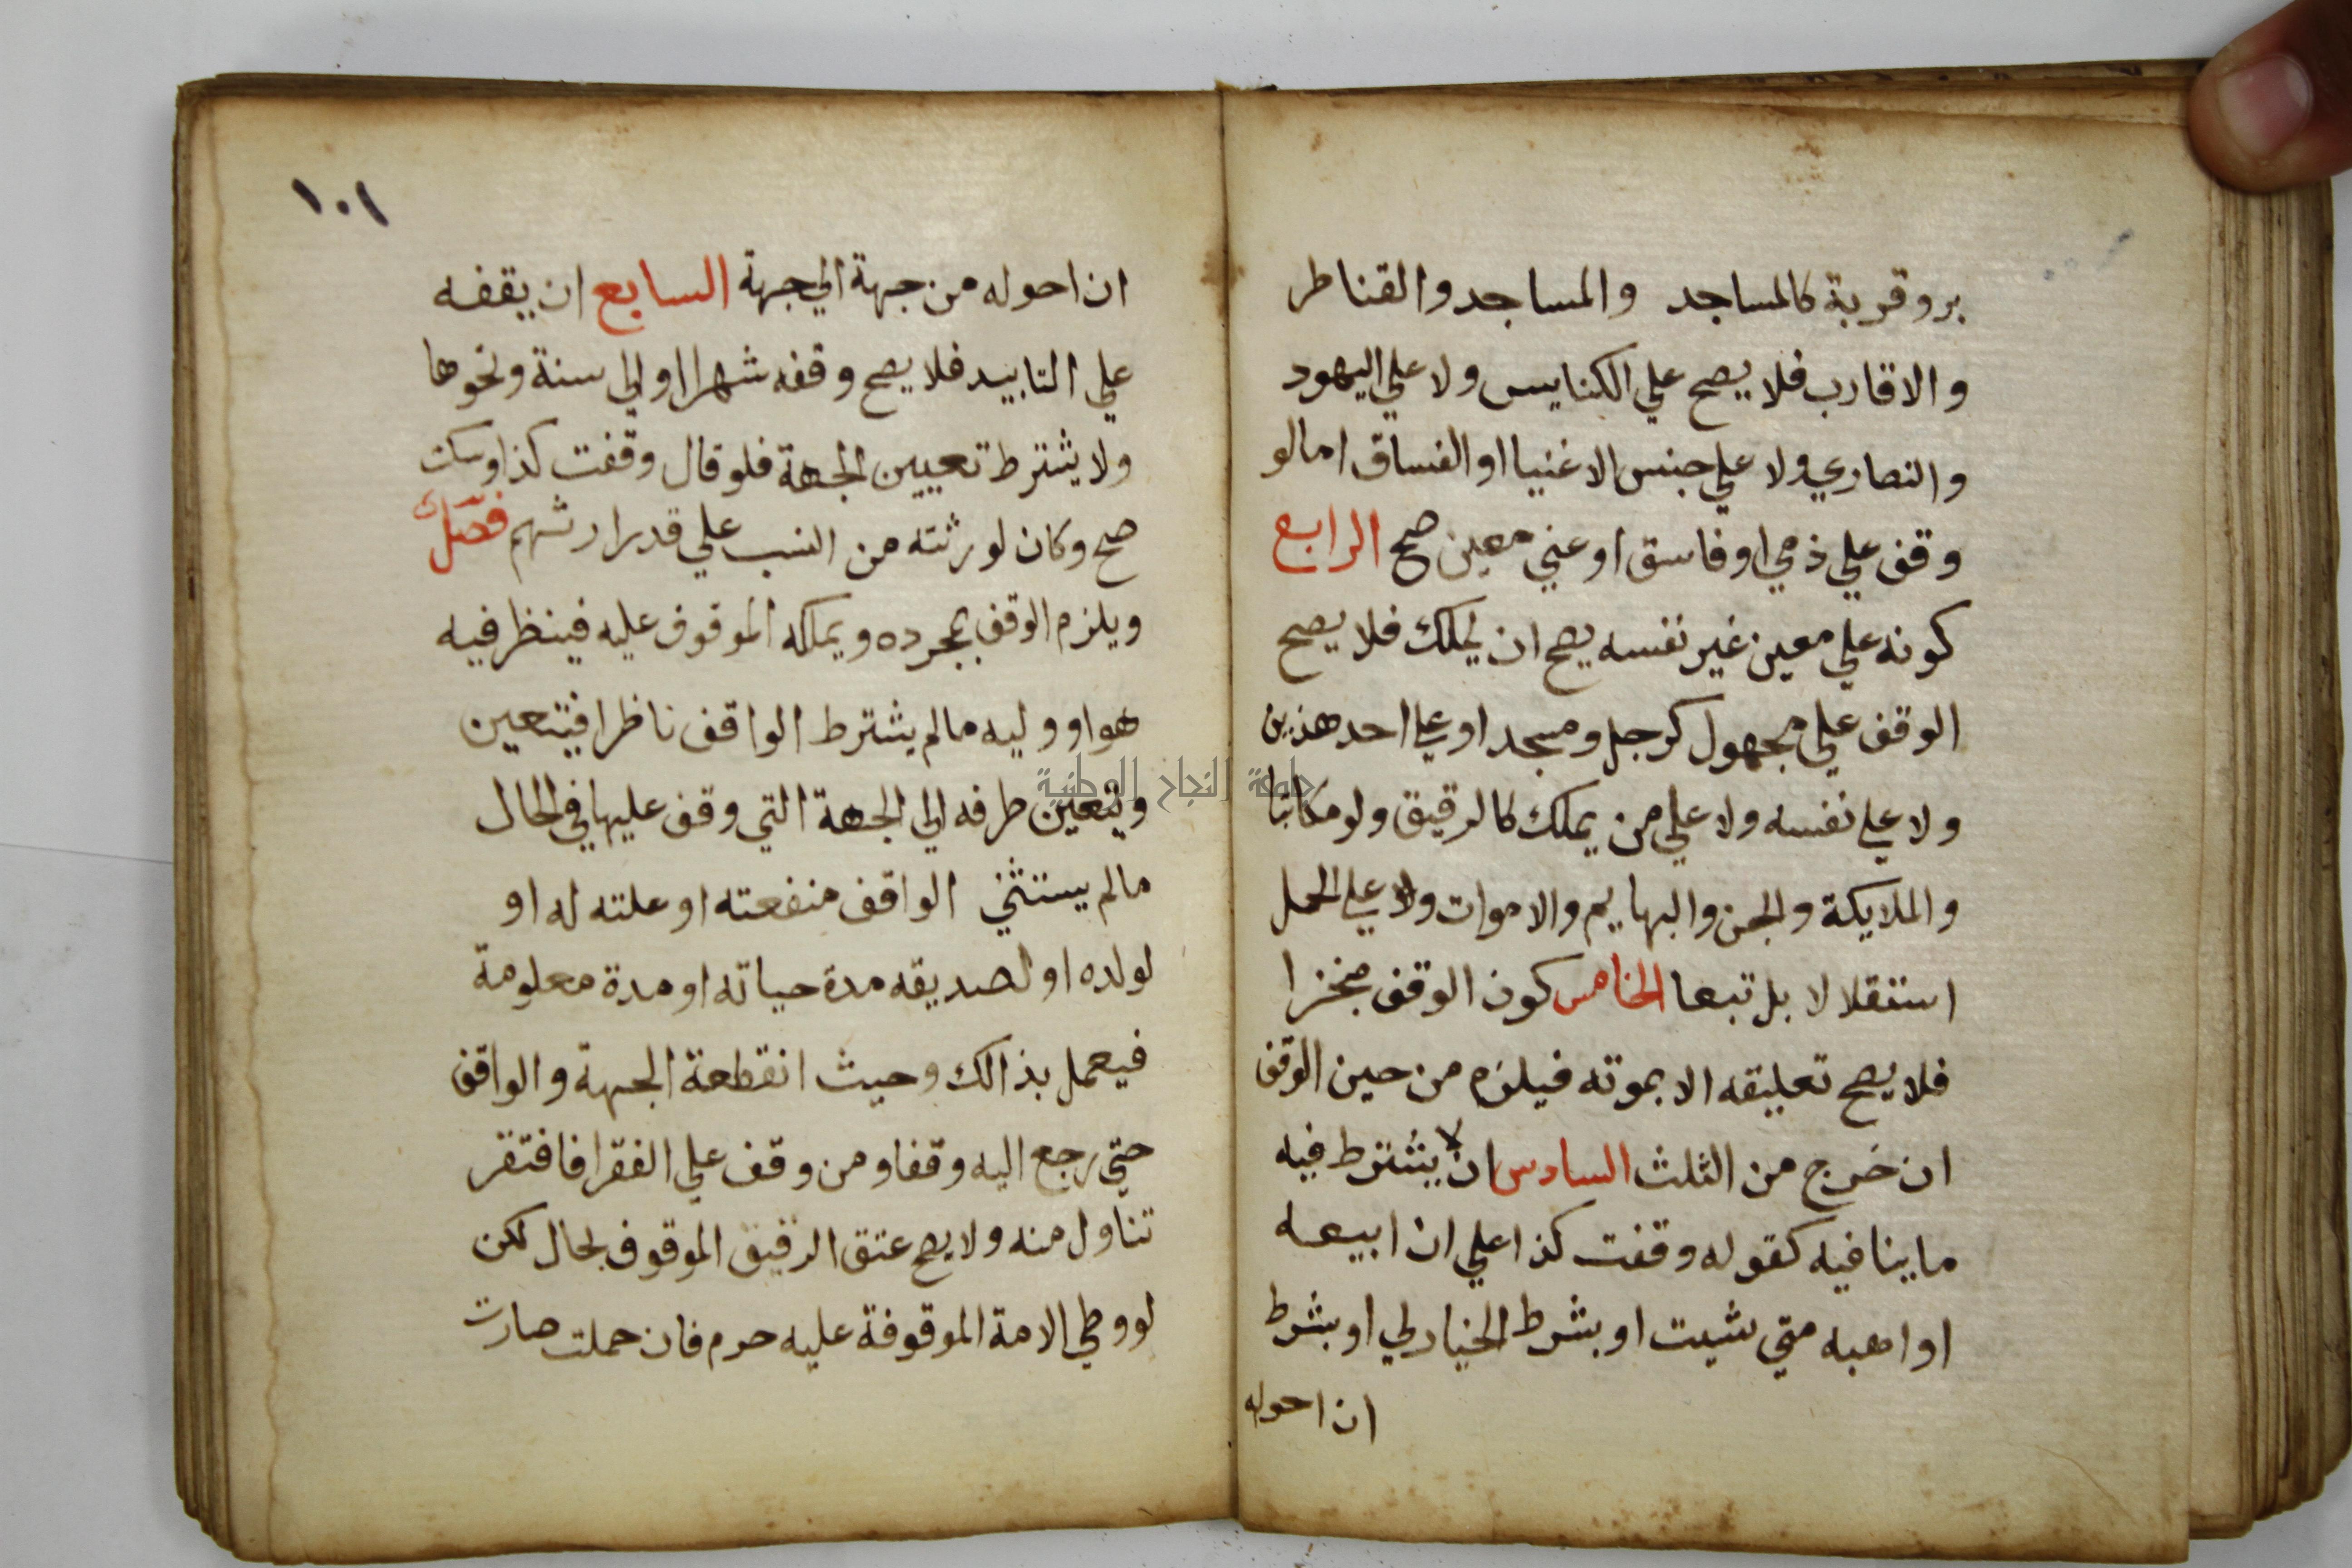 بر وقربة كالمساجد والمساجد والقناطر
والاقارب فلا يصح علي الكنايس ولا علي اليهود
والنصاري ولا علي جنس الاغنيا او الفساق اما لو
وقف علي ذمي او فاسق او غني معين صح الرابع
كونه علي معين غير نفسه يصح ان يملك فلا يصح
الوقف علي مجهول كرجل ومسجد او علي احد هذين
ولا علي نفسه ولا علي من يملك كالرقيق ولو مكاتبا
والملايكة والجن والبهايم والاموات ولا علي الحمل
استقلالا بل تبعا الخامس كون الوقف منجزا
فلا يصح تعليقه الا بموته فيلزم من حين الوقف
ان خرج من الثلث السادس ان لا يشترط فيه
ما ينافيه كقوله وقفت كذا علي ان ابيعه
او اهبه متي شيت او بشرط الخيار لي او بشرط
ان احوله
١٠١
ان احوله من جهة الي جهة السابع ان يقفه
علي التابيد فلا يصح وقفه شهرا او الي سنة ونحوها
ولا يشترط تعيين الجهة فلو قال وقفت كذا وسكت
صح وكان لورثته من النسب علي قدر ارثهم فصل
ويلزم الوقف بمجرده ويملكه الموقوف عليه فينظر فيه
هو او وليه ما لم يشترط الواقف ناظرا فيتعين
ويتعين صرفه الي الجهة التي وقف عليها في الحال
ما لم يستثني الواقف منفعته او غلته له او
لولده او لصديقه مدة حياته او مدة معلومة
فيعمل بذالك وحيث انقطعة الجهة والواقف
حتي رجع اليه وقفا ومن وقف علي الفقرا فافتقر
تناول منه ولا يصح عتق الرقيق الموقوف بحال لكن
لو وطي الامة الموقوفة عليه حرم فان حملت صارت
جامعة النجاح الوطنية